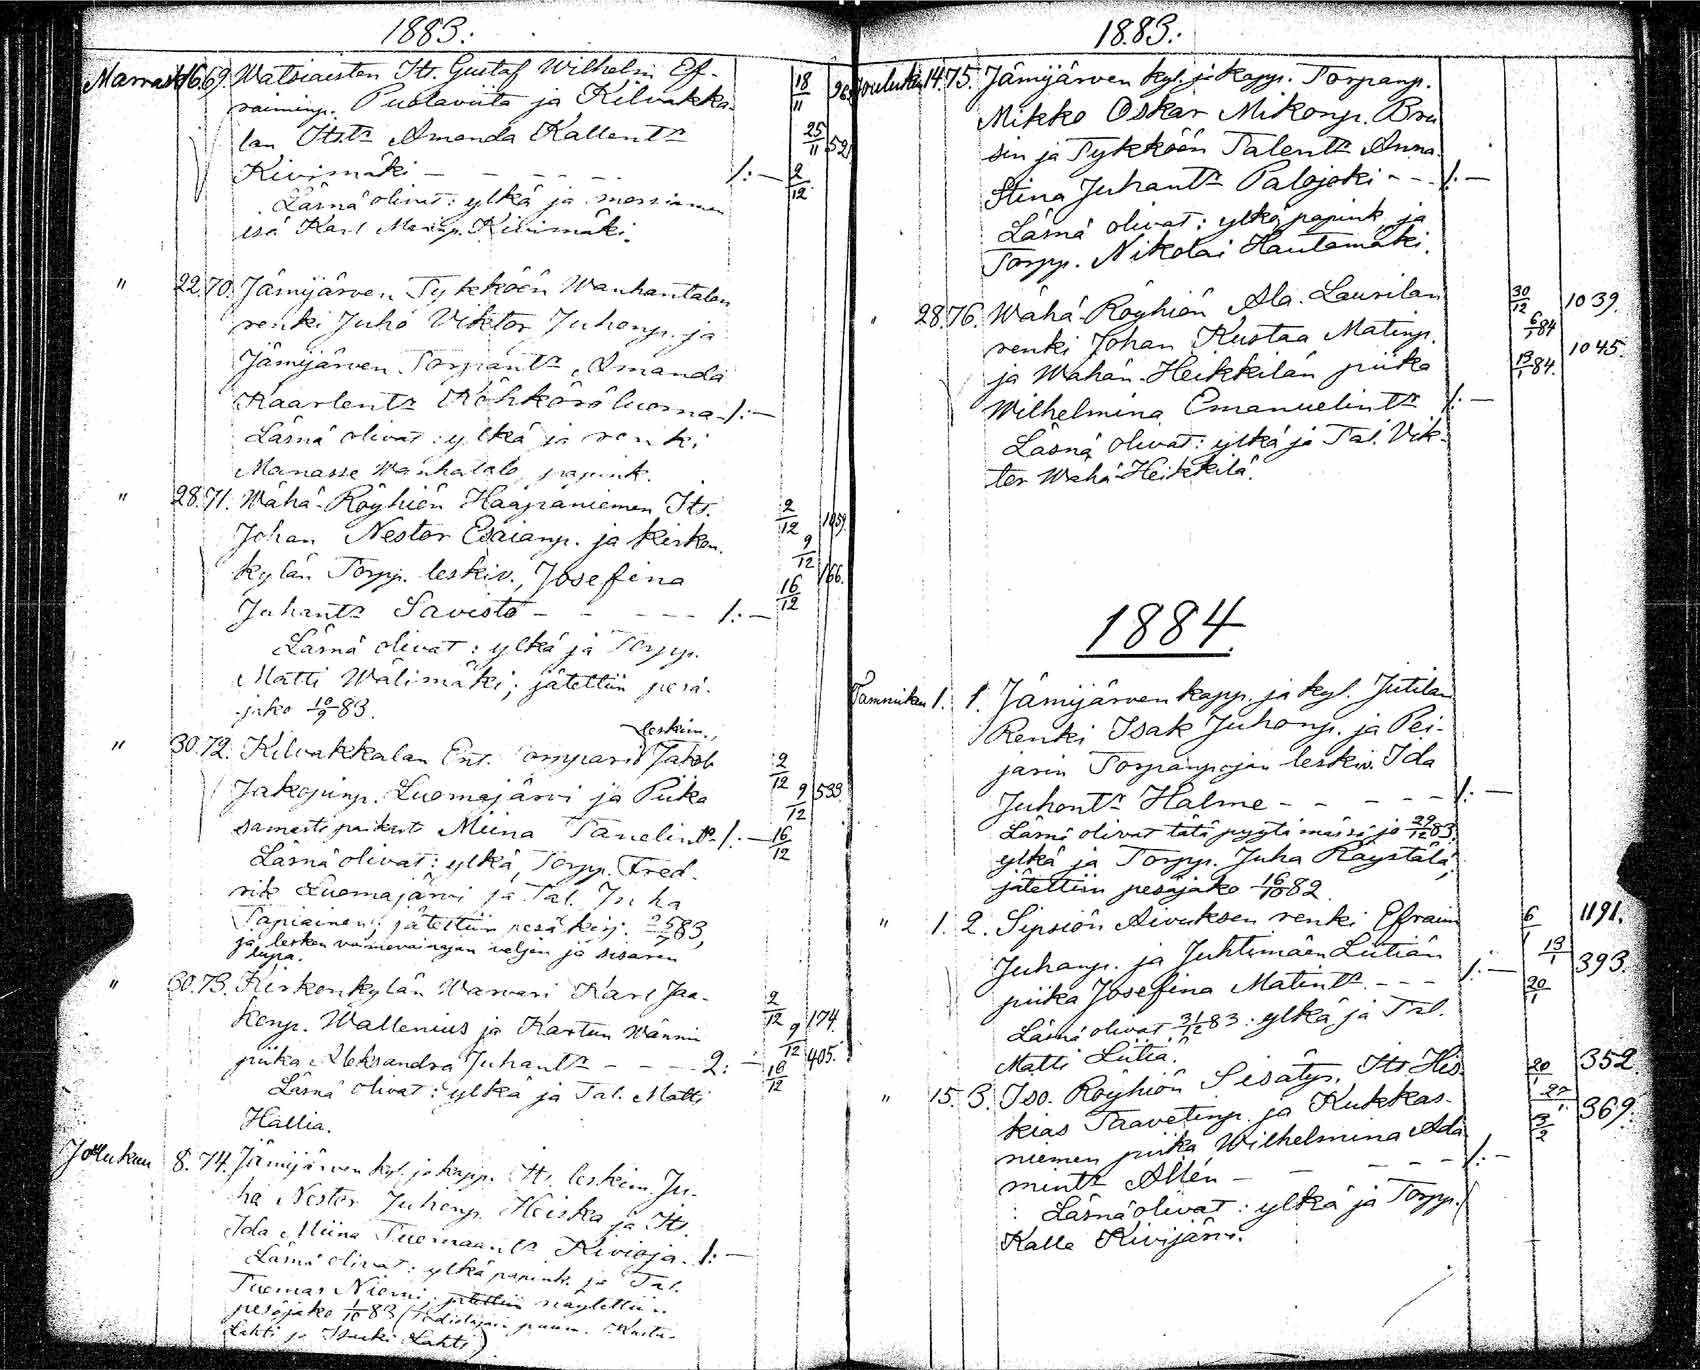 1883.
Marrask. 16. 69. Watsiaisten Its. Gustaf Wilhelm Ef-
raiminp. Puolaviita ja Kilvakka-
lan Its.tr Amanda Kallentr
Kivimäki - - - - - 1:-
Läsnä olivat: ylkä ja morsiamen
isä Karl Kivimäki.
18/11 25/11 52. 2/12
" 22. 70. Jämijärven Tykköön Wanhantalon
renki Juho Viktor Juhonp. ja
Jämijärven Torpantr Amanda
Kaarlentr Köhköröluoma - 1:-
Läsnä olivat: ylkä ja renki
Manasse Wanhatalo papink.
" 28. 71. Wähä-Röyhiön Haapaniemen Its.
Johan Nestor Esaianp. ja kirkon-
kylän Torpp. leskiv. Josefina
Juhantr Savisto - - - - - 1:-
Läsnä olivat: ylkä ja Torpp.
Matti Wälimäki; jätettiin pesä-
jako 10/9 83.
2/12 9/12 166. 16/12
leskim.,
" 30. 72. Kilvakkalan Ent. Jakob
Jakopinp. Luomajärvi ja Piika
samasta paikasta Miina Tanelintr 1:-
Läsnä olivat: ylkä, Torpp. Fred-
rik Luomajärvi ja Tal. Juha
Tapiainen; jätettiin pesäkirj. 83,
ja lesken vaimovainajan veljen ja sisaren
lupa.
2/12 9/12 533. 16/12
" 30. 73. Kirkonkylän Warvari Karl Jaa-
konp. Wallenius ja Kartun Wännin
piika Aleksandra Juhantr - - - 2:-
Läsnä olivat: ylkä ja Tal. Matti
Hallia.
2/12 174. 9/12 405. 16/12
Joulukuu 8. 74. Jämijärven kyl. ja kapp. Its. leskim. Ju-
ha Nestor Juhonp. Heiska ja Its.
Ida Miina Tuomaantr Kivioja. 1:-
Läsnä olivat: ylkä papink. ja Tal.
Tuomas Niemi. jätettiin näytettiin
pesäjako 1/10 83 (Todistajain puum. Kusta-
Lahti ja Iisakki Lahti)
1883.
Joulukuu 14. 75. Jämijärven kyl. ja kapp. Torpanp.
Mikko Oskar Mikonp. Bru
sin ja Tykköön Talentr Anna
Stina Juhantr Palojoki - - - 1:-
Läsnä olivat: ylkä papink. ja
Torpp. Nikolai Hautamäki.
" 28. 76. Wähä-Röyhiön Ala-Laurilan
renki Johan Kustaa Matinp.
ja Wähän-Heikkilän piika
Wilhelmina Emanuelintr 1:-
Läsnä olivat: ylkä ja Tal. Vik-
tor Wähä-Heikkilä.
30/12 1039. 6/1 84 13/1 84. 1045.
1884.
Tammikuu 1. 1. Jämijärven kapp. ja kyl. Jutilan
Renki Isak Juhonp. ja Pei-
jarin Torpanpojan leskiv. Ida
Juhontr Halme - - - - - 1:-
Läsnä olivat tätä pyytämässä jo 29/12 83:
ylkä ja Torpp. Juha Räystälä;
jätettiin pesäjako 16/10 82.
" 1. 2. Sipsiön Aivuksen renki Efraim
Juhanp. ja Juhtimäen Lutiän
piika Josefina Matintr - - - 1:-
Läsnä olivat 31/12 83: ylkä ja Tal.
Matti Lutiä.
6/1 1191. 13/1 393. 20/1
" 15. 3. Iso-Röyhiön Sisätys. Its. His-
kias Taavetinp. ja Kukkas-
niemen piika Wilhelmina Ada
mintr Allén - - - - - 1:-
Läsnä olivat: ylkä ja Torpp.
Kalle Kivijärvi.
20/1 352 27/1 369. 3/2